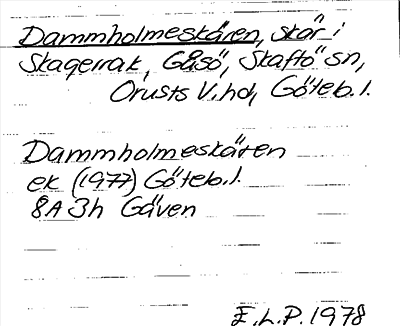 Dammholmeskären, skär i
Skagerrak, Gåsö, Skaftö sn,
Orusts V. hd, Göteb. l.
Dammholmeskären
ek (1977) Göteb. l.
8A 3h Gåven
E.L.P. 1978